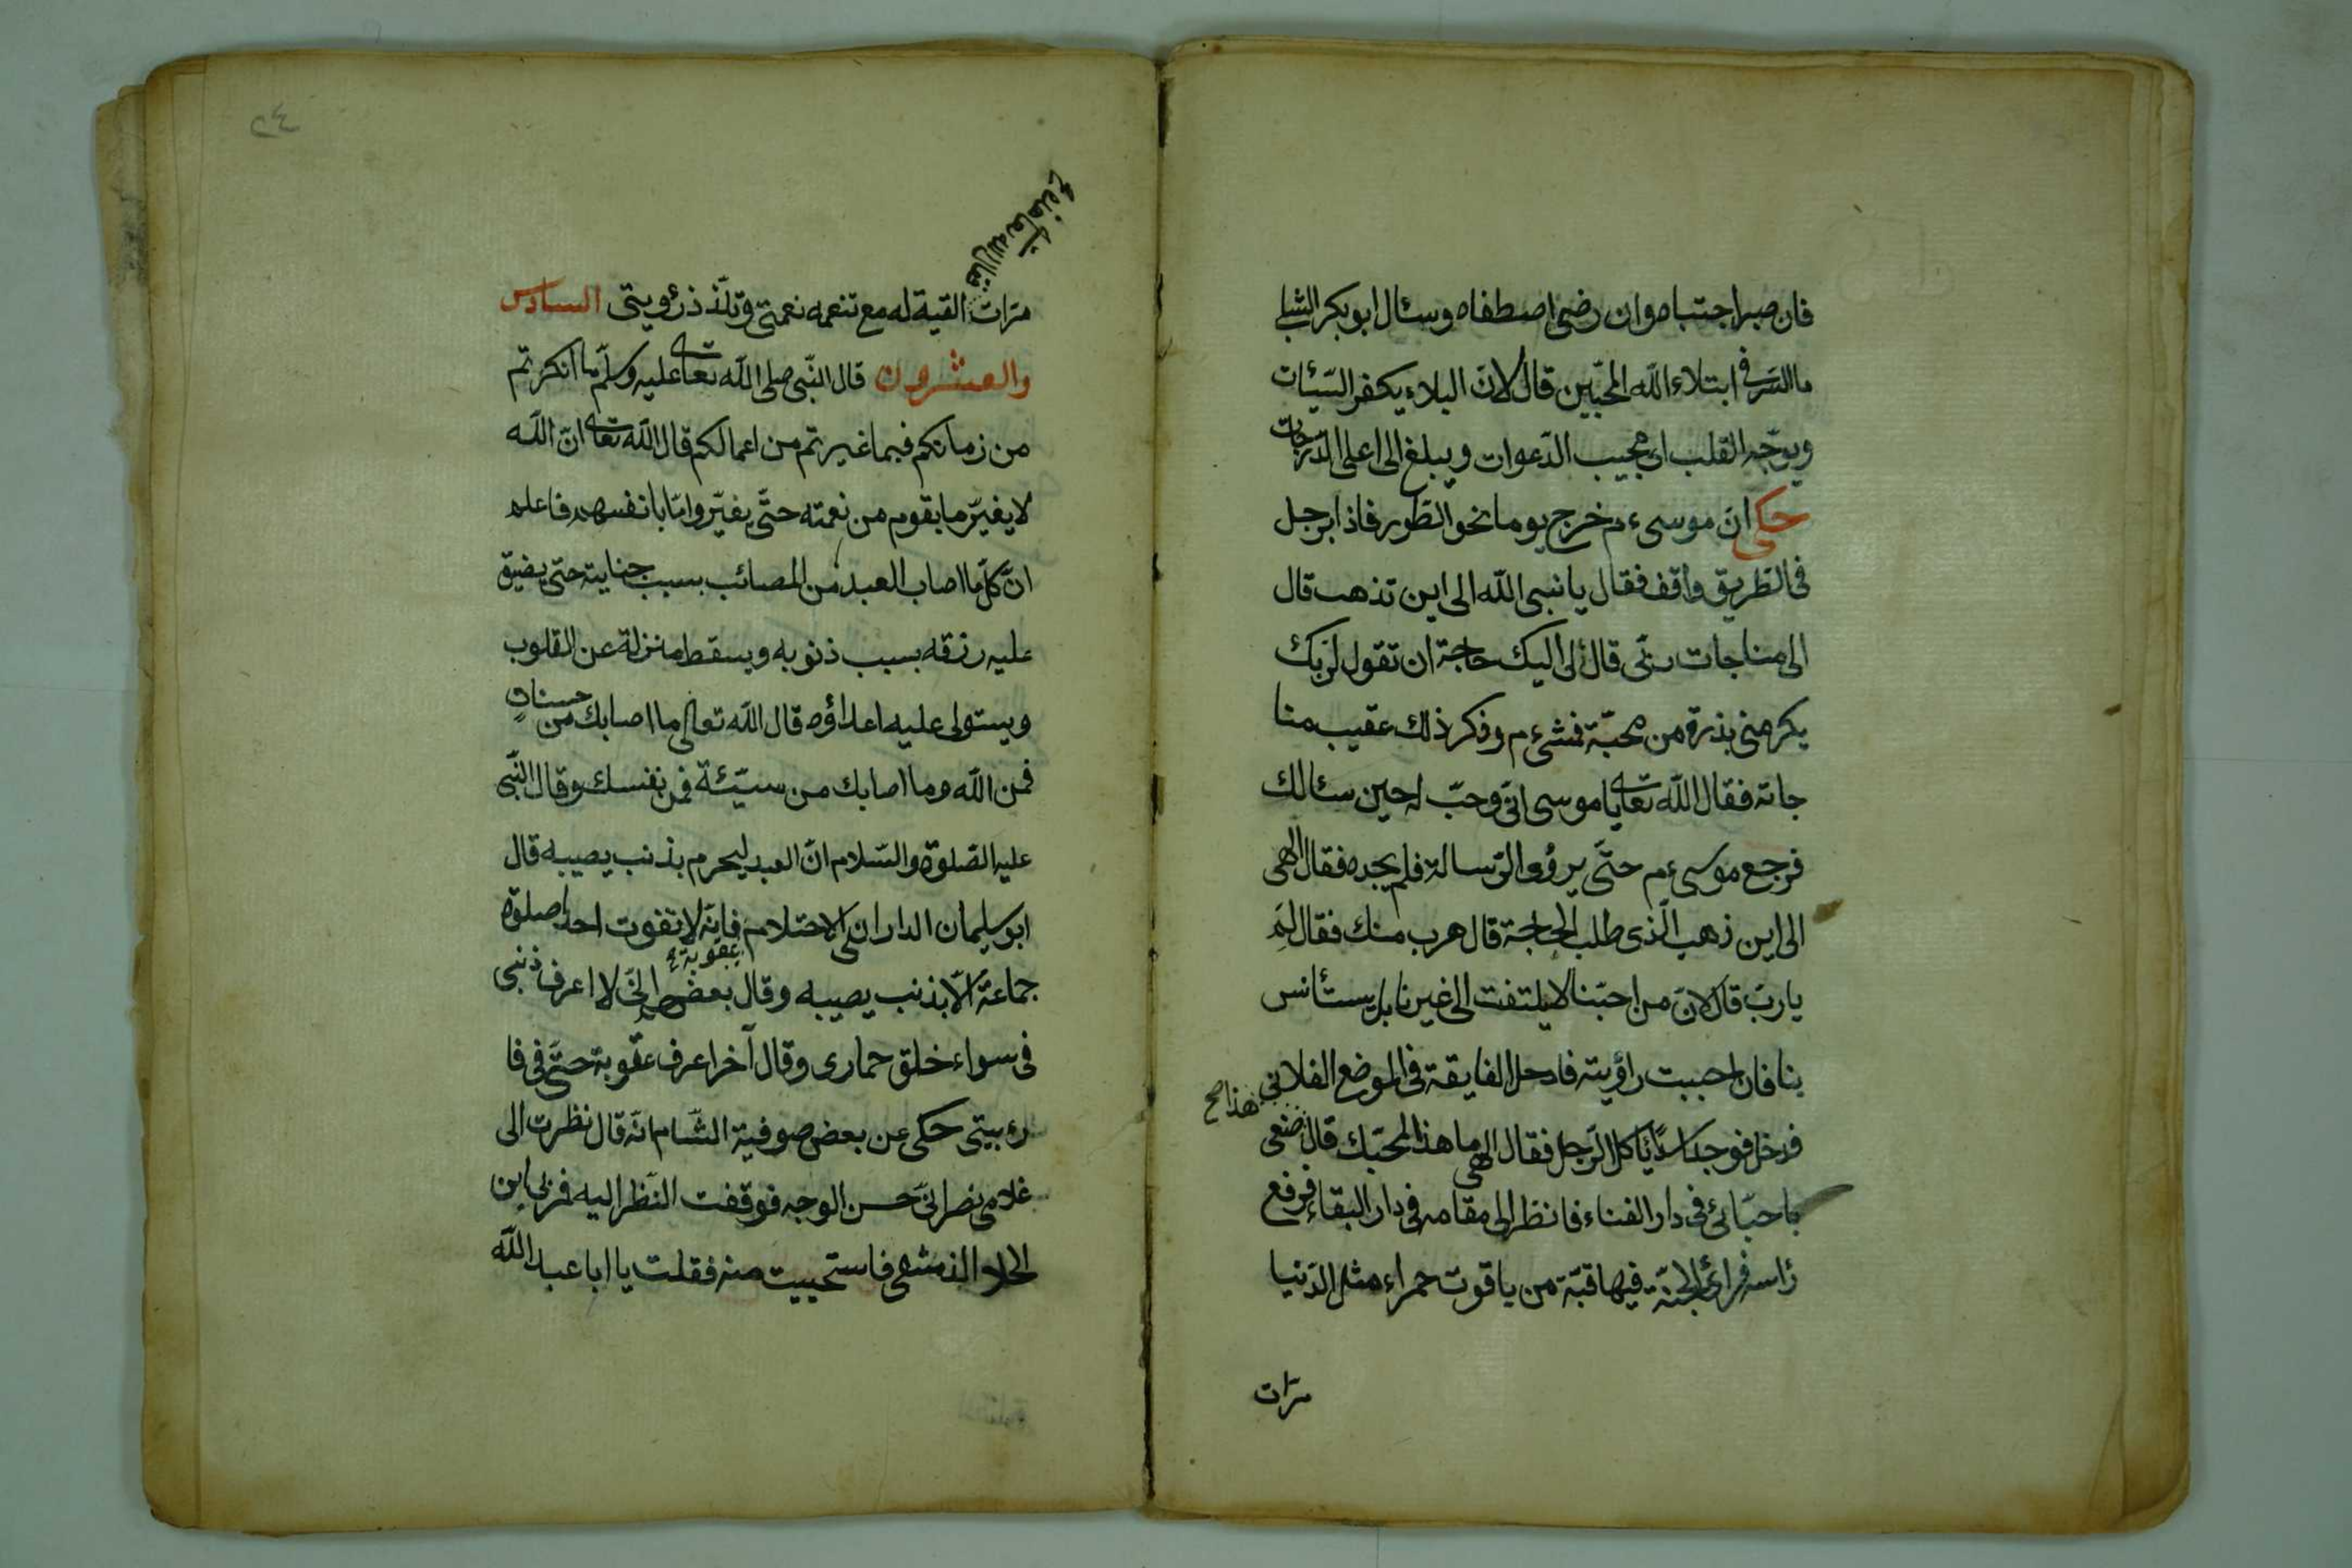 فان صبر اجتباه وان رضى اصطفاه وسئال ابو بكر الشبلى
ما السّر فى ابتلاء اللّه المحبّين قال لانّ البلاء يكفر السّيئات
ويوجّه القلب الى مجيب الدّعوات ويبلغ الى اعلى الدّرجات
حكى انّ موسى ءم خرج يوما نحو الطّور فاذا برجل
فى الطّريق واقف فقال يا نبى اللّه الى اين تذهب قال
الى مناجات ربّى قال لى اليك حاجة ان تقول لربك
يكرمنى بذرة من محبّة فمشى ءم وفكر ذلك عقيب منا
جاته فقال اللّه تعالى يا موسى انّى وحبّ له حين سئالك
فرجع موسى ءم حتّى يرؤى الرّسالة فلم يجده فقال الهى
الى اين ذهب الّذى طلب الحاجة قال هرب منك فقال لم
يا ربّ قال لانّ من احبّنا لا يلتفت الى غيرنا بل يستئانس
بنا فان احببت راؤيته فادحل الفايقة فى الموضع الفلانى
هذا صح
فدخل فوجد اسدًا يأكل الرّجل فقال الهى ما هذا المحبّك قال صنعى
باحبّائى فى دار الفناء فانظر الى مقامه فى دار البقاء فرفع
رأسه فرأى الجنّة فيها قبّة من ياقوت حمراء مثل الدّنيا
مرّات
فقال الله تعالى
مرّات القية له مع تنعمه نعمتى وتلّذذ رؤيتى السادس
والعشرون قال النّبى صلى اللّه تعالى عليه وسلّم ما انكرتم
من زمانكم فيما غيرتم من اعمالكم قال اللّه تعالى انّ اللّه
لا يغيّر ما بقوم من نعمته حتّى يغيّروا ما بانفسهم فاعلم
انّ كلّ ما اصاب العبد من المصائب بسبب جنايته حتى يضيق
عليه رزقه بسبب ذنوبه ويسقط منزلة عن القلوب
ويستولى عليه اعداؤه قال اللّه تعالى ما اصابك من حسنات
فمن اللّه وما اصابك من سيّئة فمن نفسك وقال النّبى
عليه الصّلوة والسّلام انّ العبد ليحرم بذنب يصيبه قال
ابو سليمان الدارانى الاحتلام فانّه لا تفوت احدا صلوة
عقوبة
جماعة الّا بذنب يصيبه وقال بعضهم انّى لا اعرف ذنبى
فى سواء خلق حمارى وقال آخر اعرف عقوبة حتّى فى فا
رء بيتى حكى عن بعض صوفية الشّام انّه قال نظرت الى
غلامى نصرانىّ حسن الوجه فوقفت النّظر اليه فمرّ بى ابن
الجلاء الدّمشقى فاستحييت منه فقلت يا ابا عبد اللّه